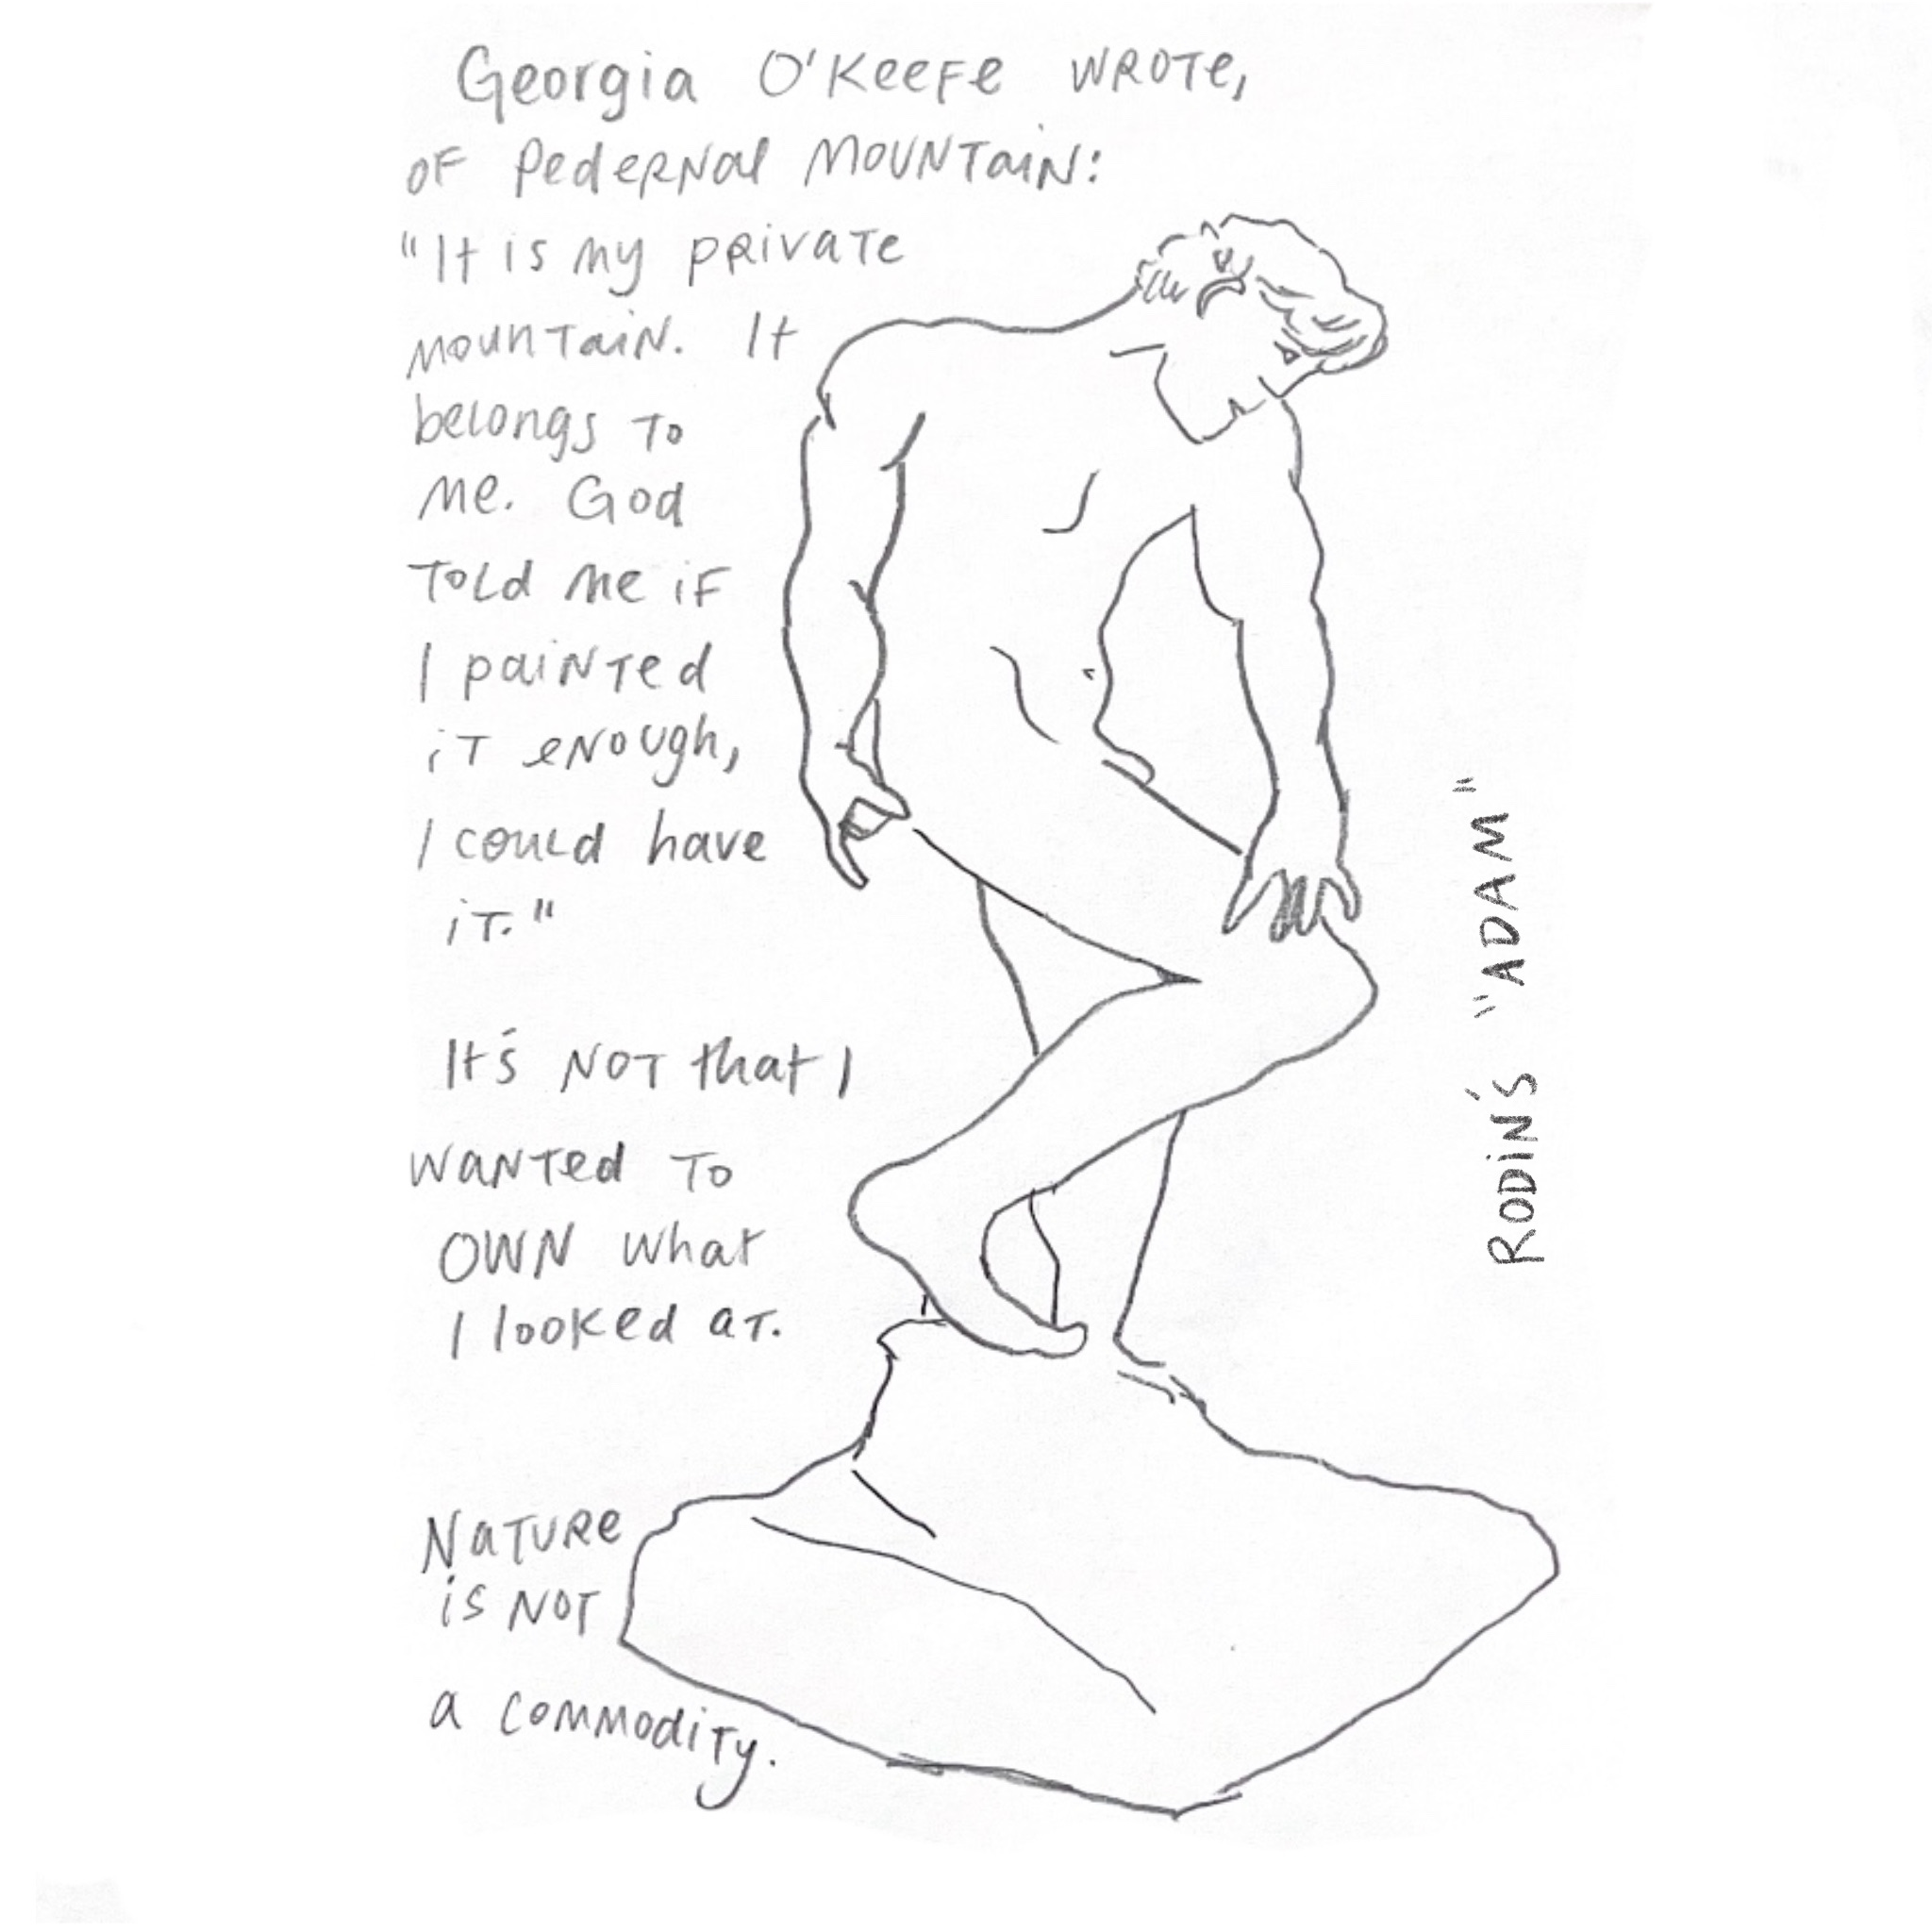 Georgia O'Keefe wrote,
of Pedernal Mountain:
"It is my private
mountain. It
belongs to
me. God
told me if
I painted
it enough,
I could have
it."
It's not that I
wanted to
own what
I looked at.
Nature
is not
a commodity.
RODIN'S "ADAM"